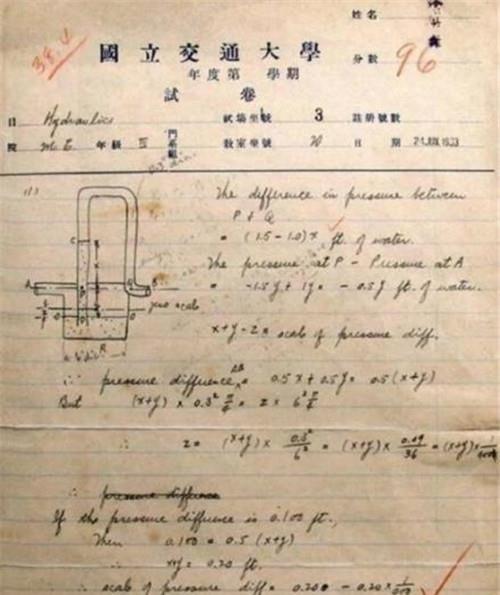 姓名
38.4
國立交通大學
分數 96
年度第 學期
試卷
目 Hydraulics 試場坐號 3 註冊號數
院 M.E. 年級 III 門系組 教室坐號 20 日期 24 JUN 1933
(1)
The difference in pressure between
P & Q
= (1.5 - 1.0) x ft. of water.
The pressure at P - Pressure at A
= -1.5y + 1y = -0.5y ft. of water.
x+y-z = scale of pressure diff.
∴ pressure difference AB = 0.5x + 0.5y = 0.5(x+y)
But (x+y) × 0.3² π/4 = z × 6² π/4
∴ z = (x+y) × 0.3²/6² = (x+y) × 0.09/36 = (x+y) × 1/400
∴ pressure difference
If the pressure difference is 0.100 ft.,
Then 0.100 = 0.5 (x+y)
∴ x+y = 0.20 ft.
∴ scale of pressure diff = 0.200 - 0.20 × 1/400